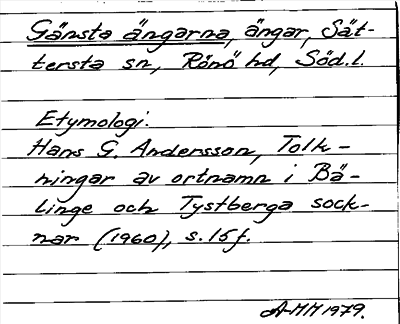 Gänsta ängarna, ängar, Sät-
tersta sn, Rönö hd, Söd.l.
Etymologi:
Hans G. Andersson, Tolk-
ningar av ortnamn i Bä-
linge och Tystberga sock-
nar (1960), s. 15f.
A-MM 1979.